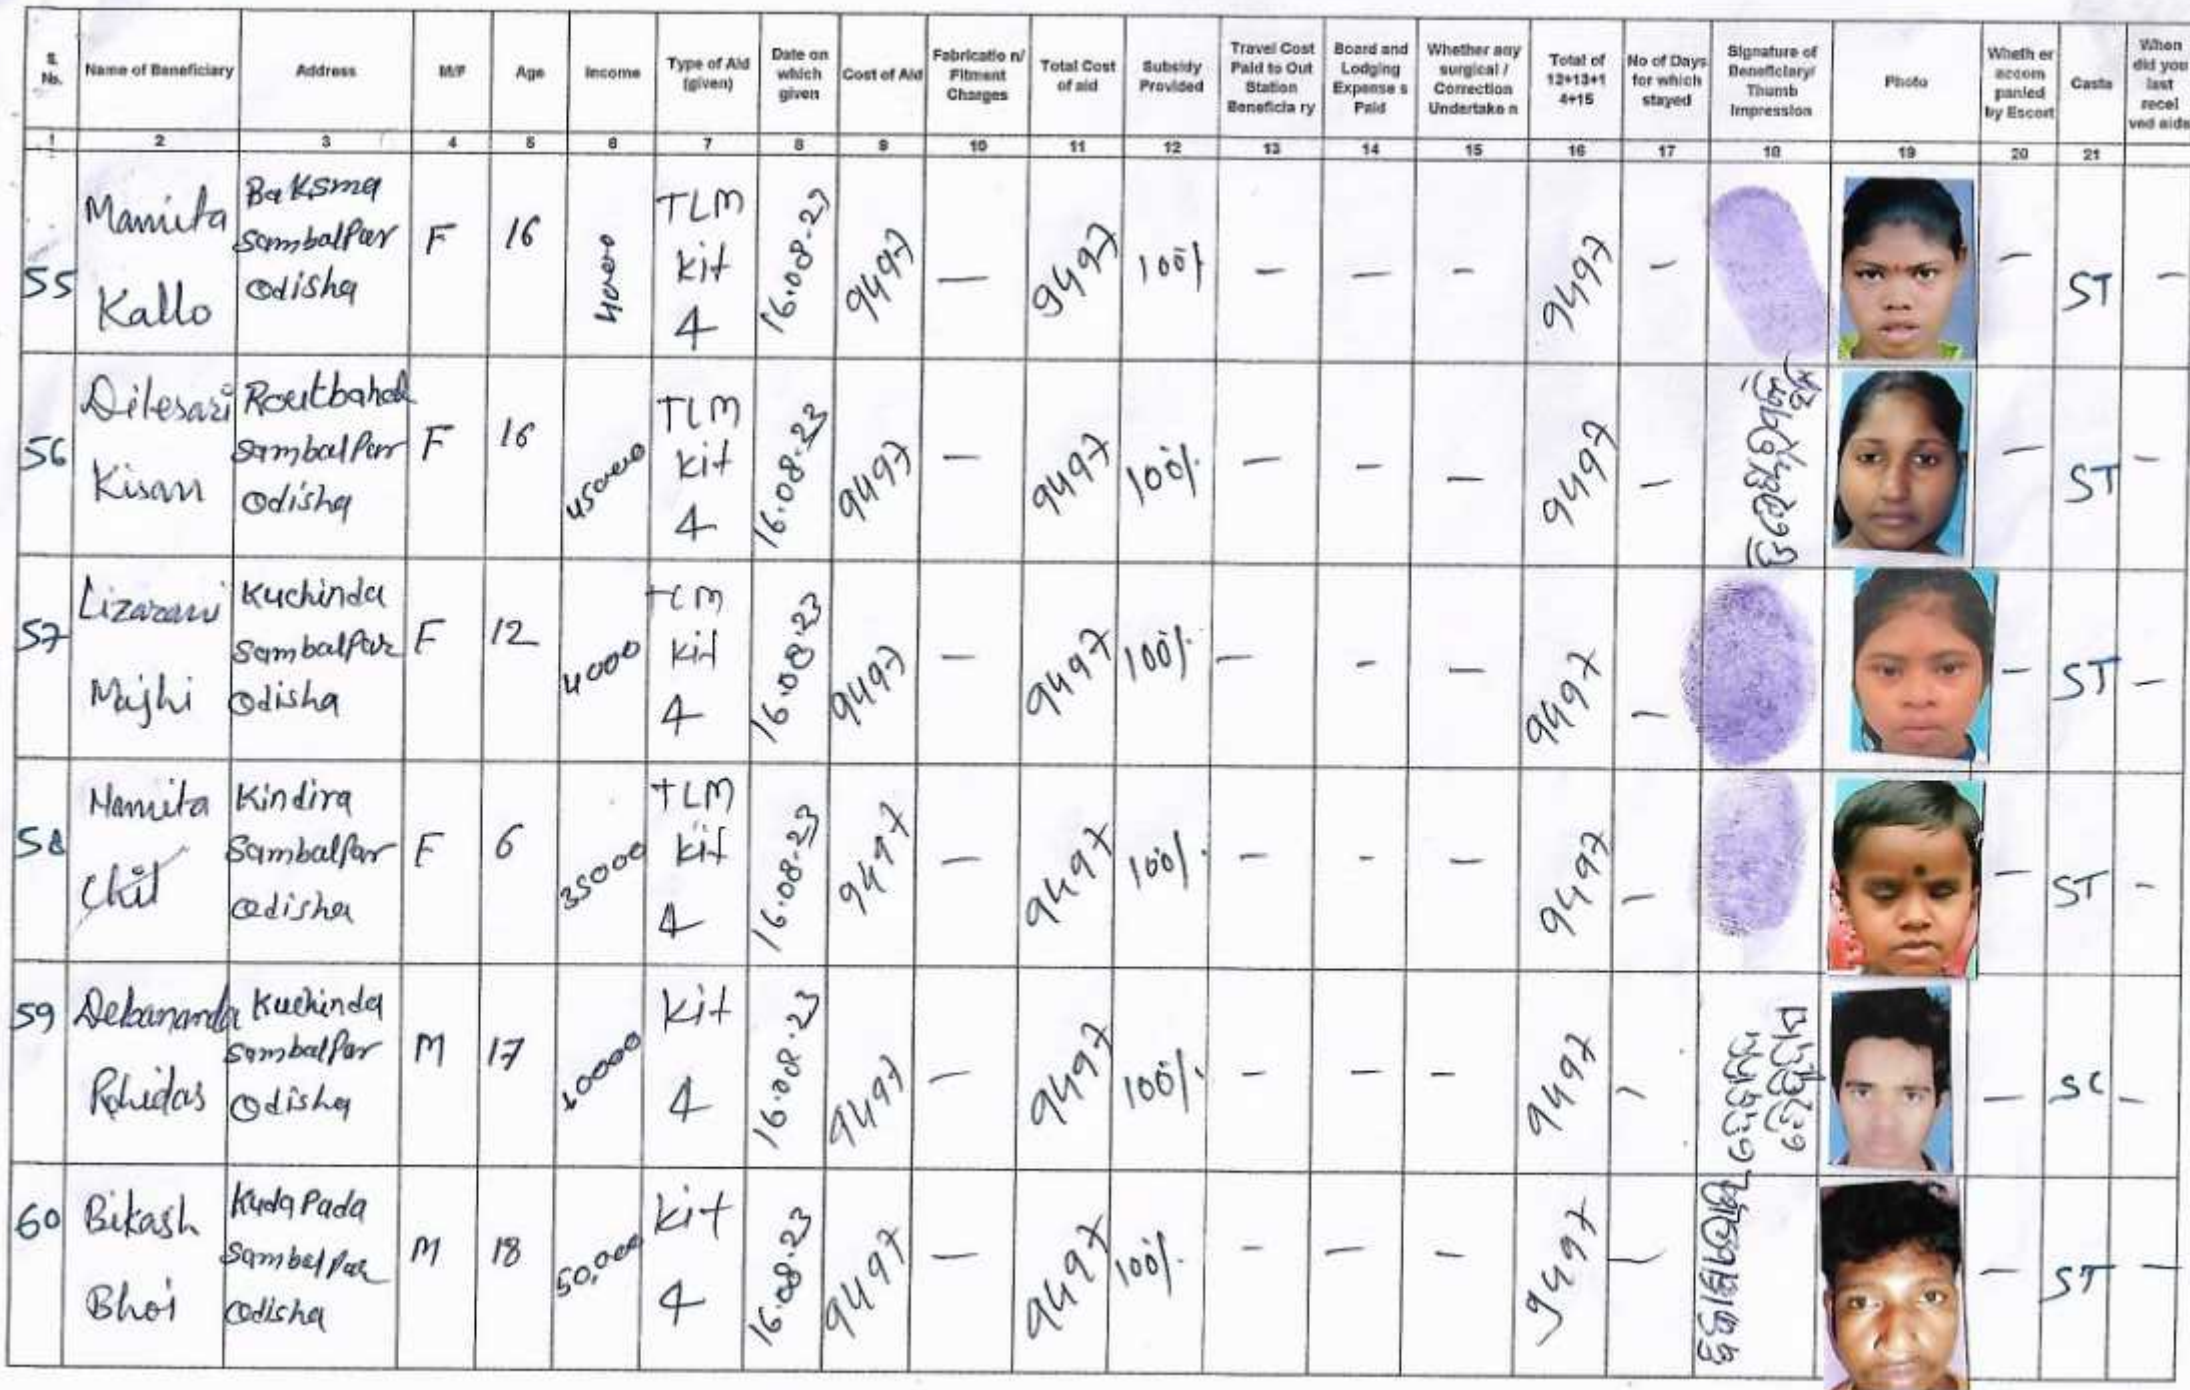 S. No.
Name of Beneficiary
Address
M/F
Age
Income
Type of Aid (given)
Date on which given
Cost of Aid
Fabricatio n/ Fitment Charges
Total Cost of aid
Subsidy Provided
Travel Cost Paid to Out Station Beneficia ry
Board and Lodging Expense s Paid
Whether any surgical / Correction Undertake n
Total of 12+13+1 4+15
No of Days for which stayed
Signature of Beneficiary/ Thumb Impression
Photo
Wheth er accom panied by Escort
Caste
When did you last recei ved aids
1 2 3 4 5 6 7 8 9 10 11 12 13 14 15 16 17 18 19 20 21
55 Mamita Kallo Baksma Sambalpur Odisha F 16 TLM kit 4 16.08.23 9497 — 9497 100% — — — 9497 — — ST —
56 Dilesari Kisan Sambalpur Odisha F 16 TLM kit 4 16.08.23 9497 — 9497 100% — — — 9497 — — ST —
57 Lizarani Majhi Kuchinda Sambalpur Odisha F 12 4000 TLM kit 4 16.08.23 9497 — 9497 100% — — — 9497 — — ST —
58 Kindira Sambalpur Odisha F 6 35000 TLM kit 4 16.08.23 9497 — 9497 100% — - — 9497 — — ST -
59 Debananda Rohidas Kuchinda Sambalpur Odisha M 17 kit 4 16.08.23 9497 — 9497 100% — — — 9497 — — SC —
60 Bikash Bhoi Kudapada Sambalpur Odisha M 18 50,000 kit 4 16.08.23 9497 — 9497 100% — — — 9497 — — ST —